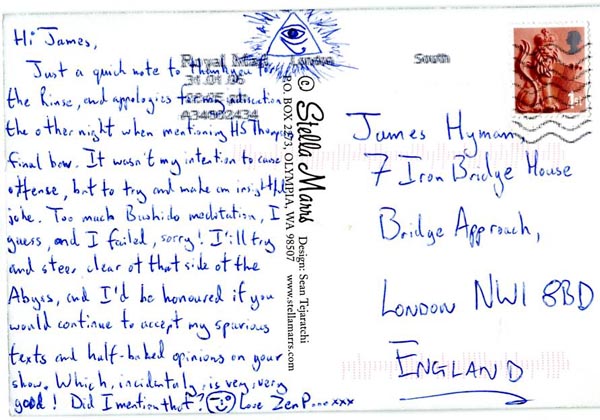 Hi James,
Just a quick note to thankyou for
the Rinse, and appologies for my indiscretion
the other night when mentioning HS Thompsons
final bow. It wasn't my intention to cause
offense, but to try and make an insightful
joke. Too much Bushido meditation, I
guess, and I failed, sorry! I'll try
and steer clear of that side of the
Abyss, and I'd be honoured if you
would continue to accept my spurious
texts and half-baked opinions on your
show. Which, incidentaly, is very, very
good! Did I mention that? Love Zen P...xxx
Royal Mail London South
A34802434
© Stella Marrs Design: Sean Tejaratchi
P.O. BOX 2573, OLYMPIA, WA 98507 www.stellamarrs.com
1st
James Hyman,
7 Iron Bridge House
Bridge Approach,
LONDON NW1 8BD
ENGLAND